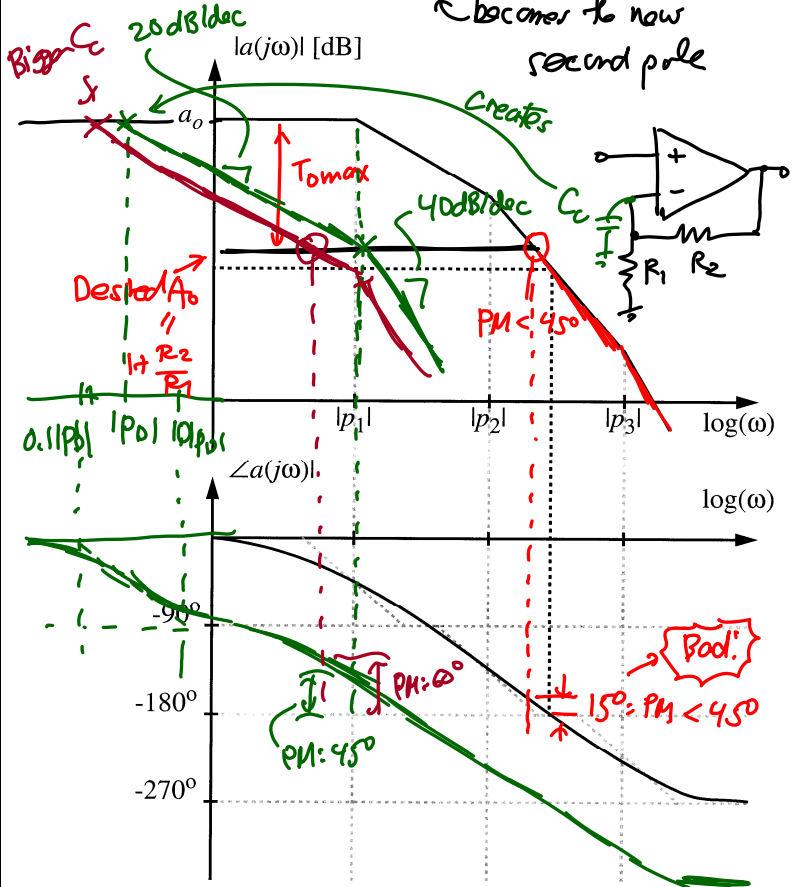 becomes the new
second pole
Bigger Cc
20dB/dec
|a(jω)| [dB]
Creates
aₒ
Tomax
40dB/dec
Cc
+
-
R₁
R₂
Desired A₀
=
1+ R₂
R₁
PM < 45°
0.1|pD|
|pD|
10|pD|
|p₁|
|p₂|
|p₃|
log(ω)
∠a(jω)|
log(ω)
-90°
Bad!
PM=60°
15°=PM < 45°
-180°
PM=45°
-270°